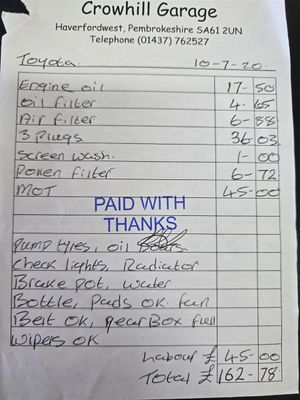 Crowhill Garage
Haverfordwest, Pembrokeshire SA61 2UN
Telephone (01437) 762527
Toyota. 10-7-20.
Engine oil 17-50
Oil filter 4-65
Air filter 6-88
3 Plugs 36-03
Screen wash. 1-00
Polen filter 6-72
MOT 45-00
PAID WITH
THANKS
Pump tyres, oil
Check lights, Radiator
Brake pot, water
Bottle, Pads ok. fan
Belt ok, gearBox full
Wipers ok
Labour £ 45-00
Total £ 162-78